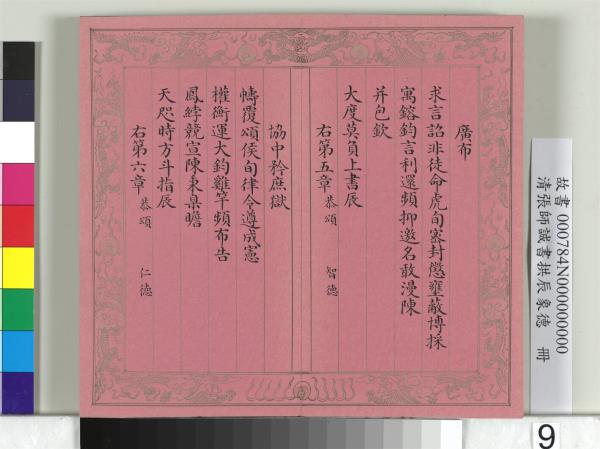 廣布
求言詔非徒命虎旬密封懲壅蔽博採
寓鎔鈞言利還頻抑邀名敢漫陳
并包欽
大度莫負上書辰
右第五章恭頌 智德
協中矜庶獄
幬覆頌侯旬律令遵成憲
權衡運大鈞雞竿頻布告
鳳綍競宣陳秉臬瞻
天咫時方斗指辰
右第六章恭頌 仁德
故書 000784N000000000
清張師誠書拱辰象德 冊
9